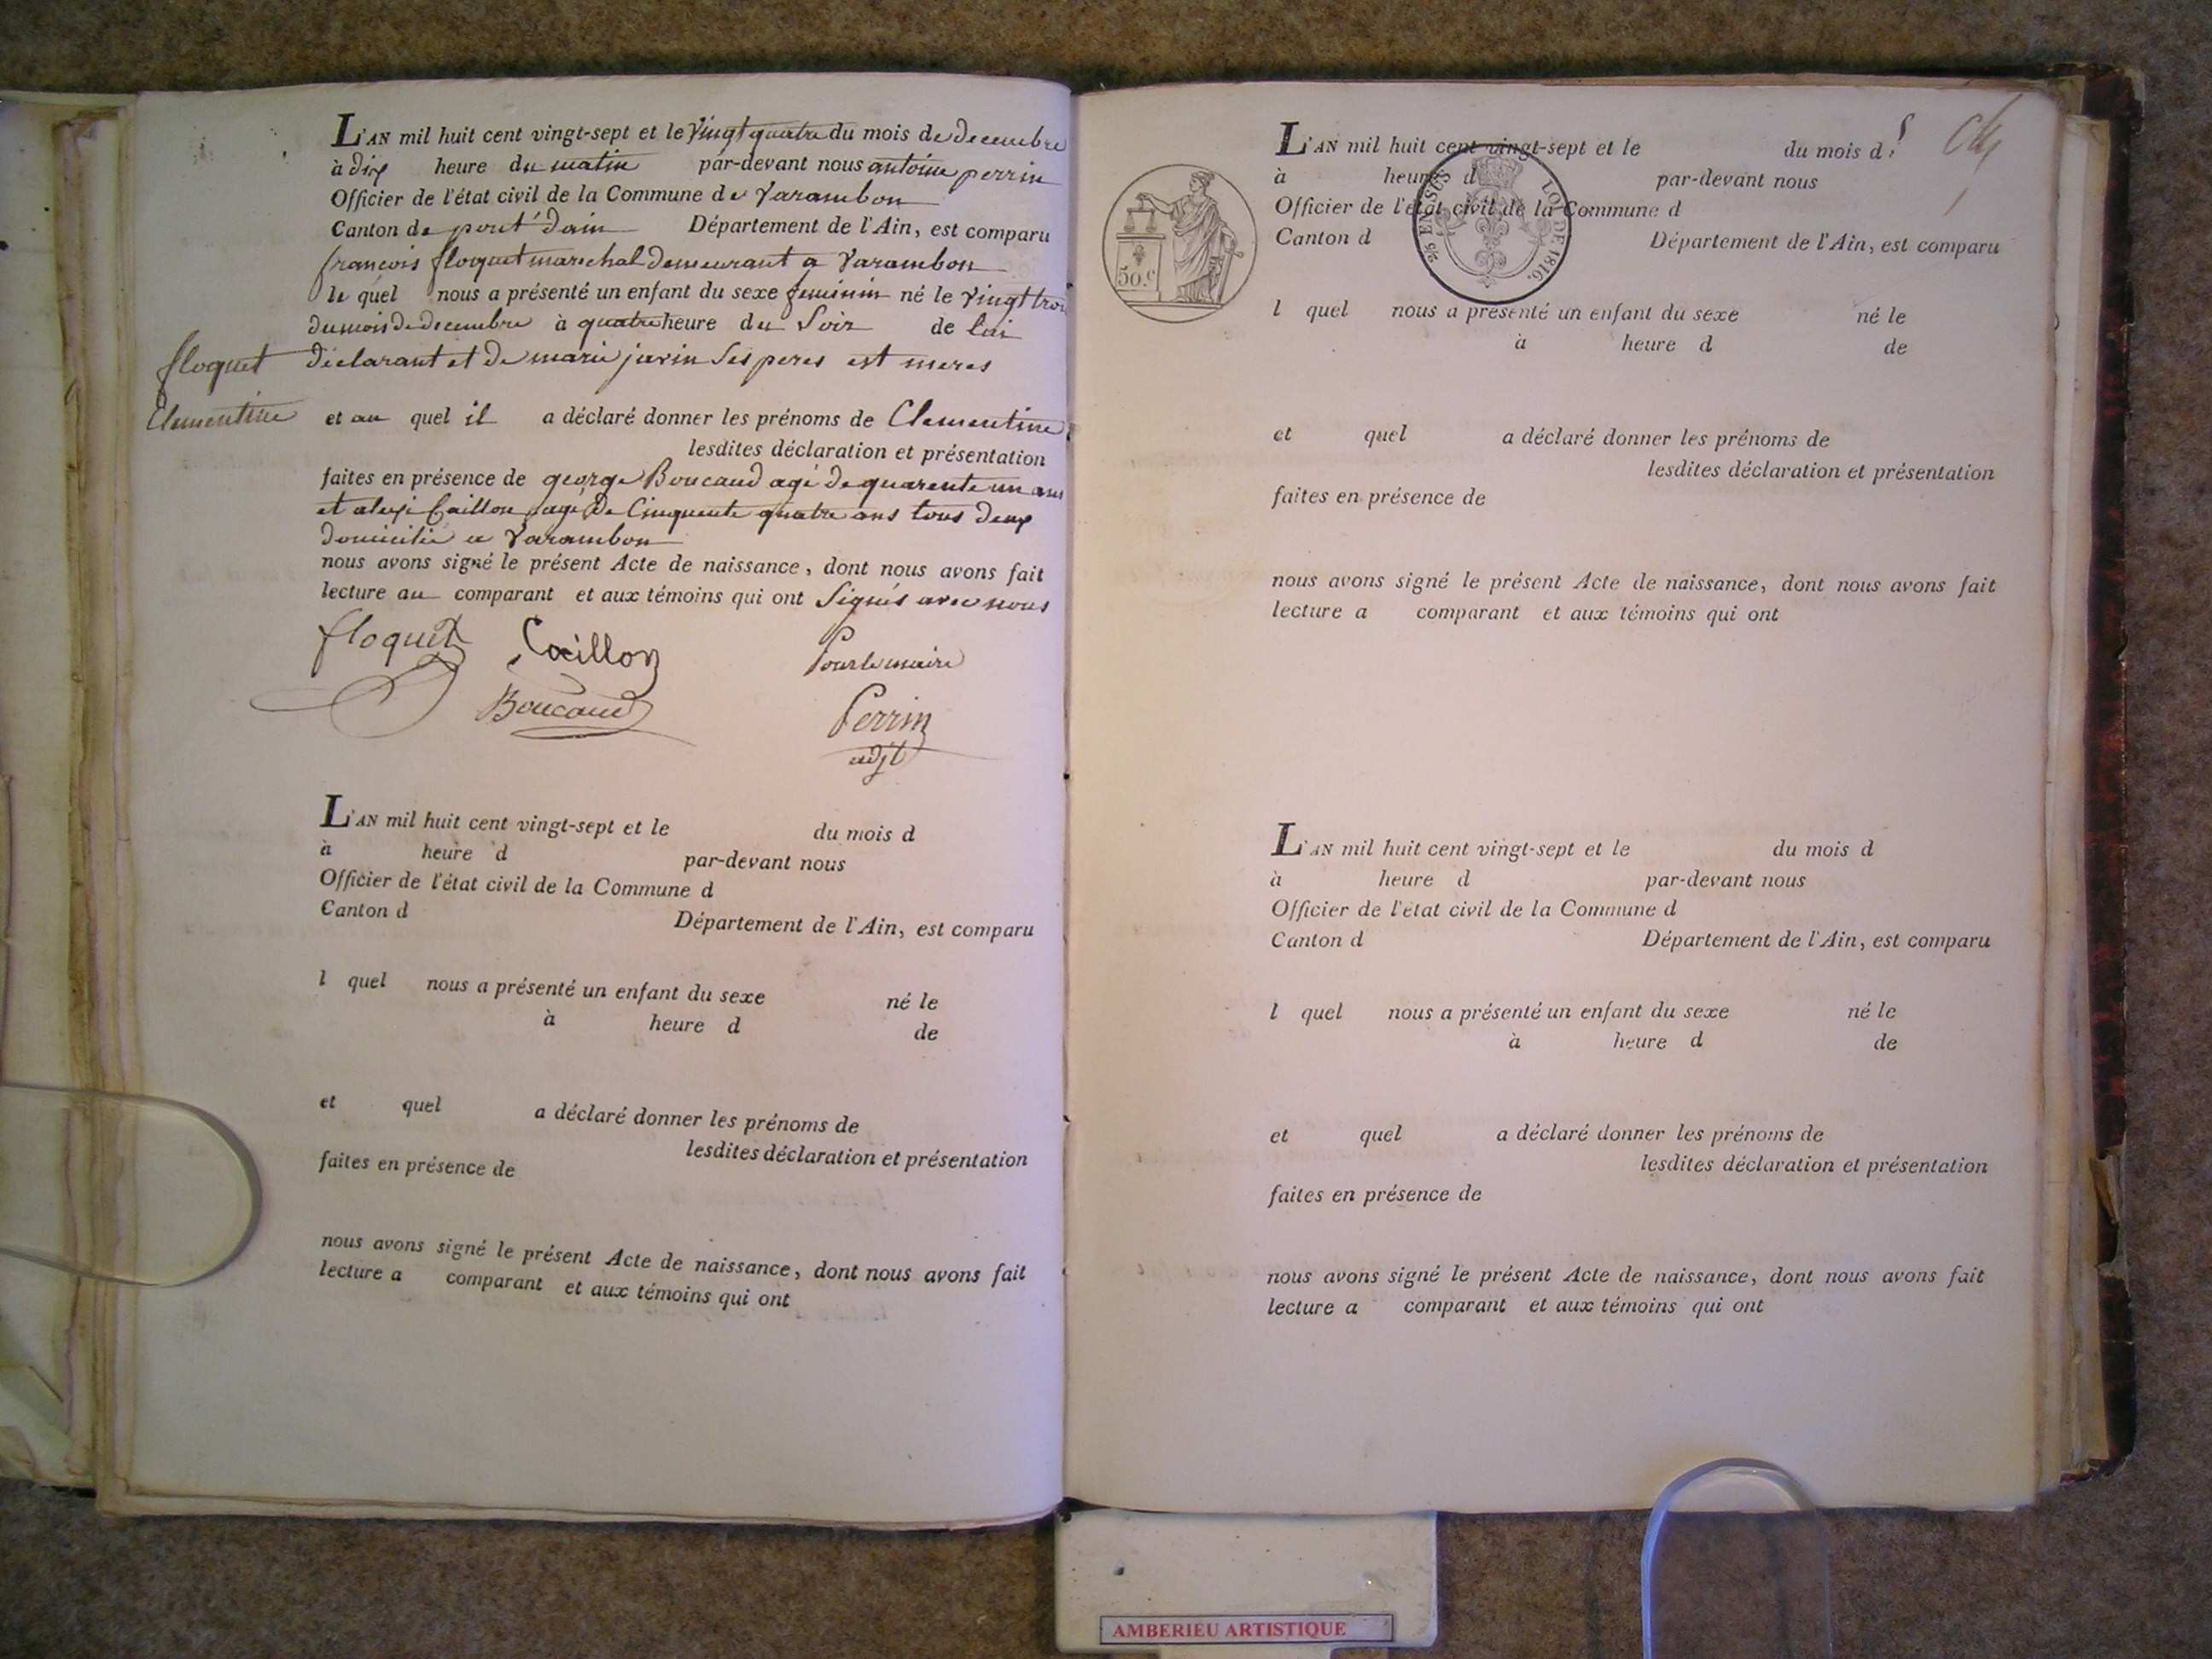 L'AN mil huit cent vingt-sept et le vingt quatre du mois de decembre
à dix heure du matin par-devant nous antoine perrin
Officier de l'état civil de la Commune de Varambon
Canton de pont d'ain Département de l'Ain, est comparu
francois floquet marechal demeurant a Varambon
le quel nous a présenté un enfant du sexe feminin né le vingt trois
du mois de decembre à quatre heure du Soir de lui
floquet
déclarant et de marie javin Ses peres est meres
Clementine
et au quel il a déclaré donner les prénoms de Clementine
lesdites déclaration et présentation
faites en présence de george Boucaud agé de quarente un ans
et alexi Caillon agé de Cinquente quatre ans tous deux
domicilié a Varambon
nous avons signé le présent Acte de naissance, dont nous avons fait
lecture au comparant et aux témoins qui ont Signés avec nous
floquet Caillon Pour le maire
Boucaud Perrin
adjt
L'AN mil huit cent vingt-sept et le du mois d
à heure d par-devant nous
Officier de l'état civil de la Commune d
Canton d Département de l'Ain, est comparu
l quel nous a présenté un enfant du sexe né le
à heure d de
et quel a déclaré donner les prénoms de
lesdites déclaration et présentation
faites en présence de
nous avons signé le présent Acte de naissance, dont nous avons fait
lecture a comparant et aux témoins qui ont
L'AN mil huit cent vingt-sept et le du mois d
à heure d par-devant nous
Officier de l'état civil de la Commune d
Canton d Département de l'Ain, est comparu
50.c
25 EN SUS LOI DE 1816.
l quel nous a présenté un enfant du sexe né le
à heure d de
et quel a déclaré donner les prénoms de
lesdites déclaration et présentation
faites en présence de
nous avons signé le présent Acte de naissance, dont nous avons fait
lecture a comparant et aux témoins qui ont
L'AN mil huit cent vingt-sept et le du mois d
à heure d par-devant nous
Officier de l'état civil de la Commune d
Canton d Département de l'Ain, est comparu
l quel nous a présenté un enfant du sexe né le
à heure d de
et quel a déclaré donner les prénoms de
lesdites déclaration et présentation
faites en présence de
nous avons signé le présent Acte de naissance, dont nous avons fait
lecture a comparant et aux témoins qui ont
AMBERIEU ARTISTIQUE